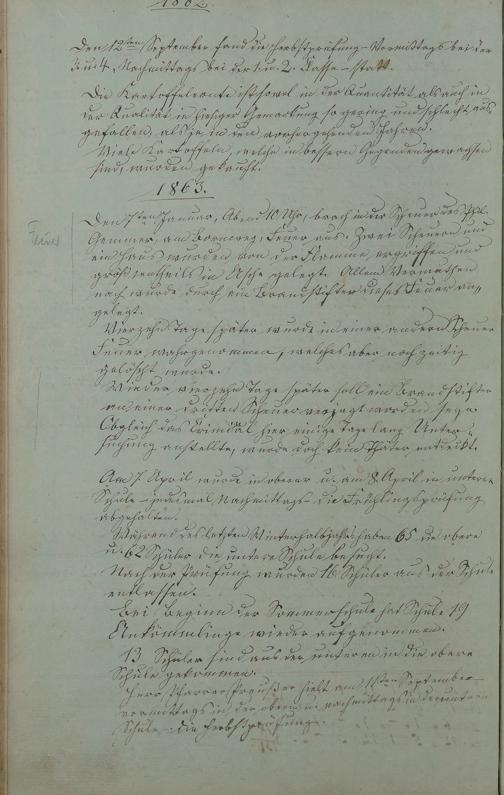 1862.
Den 12ten September fand die Herbstprüfung Vormittags bei der
3. u. 4. Nachmittags bei der 1. u. 2. Classe statt.
Die Kartoffelernte ist sowol in der Quantität als auch in
der Qualität in hiesiger Gemarkung so gering und schlecht aus
gefallen, als je in den vorhergehenden Jahren.
Viele Kartoffeln, welche in bessern Gegenden gewachsen
sind, wurden gekauft.
1863.
Den 7ten Januar, Abend 10 Uhr, brach in der Scheuer des Phl.
Gemmer, am Bornweg, Feuer aus. Zwei Scheuern und
ein Haus wurden von der Flamme ergriffen und
größtentheils in Asche gelegt. Allem Vermuthen
nach wurde durch ein Brandstifter dieses Feuer an=
gelegt.
Feuer
Vierzehn Tage später wurde in einer andern Scheuer
Feuer wahrgenommen, welches aber noch zeitig
gelöscht wurde.
Wieder vierzehn Tage später soll ein Brandstifter
an einer dritten Scheuer verjagt worden seyn.
Obgleich das Criminal hier einige Tage lang Unter=
suchung anstellte, wurde doch kein Thäter entdeckt.
Am 7 April wurde in oberer u. am 8 April in unterer
Schule jedesmal Nachmittags die Frühlingsprüfung
abgehalten.
Während des letzten Winterhalbjahrs haben 65 die obere
u. 62 Schüler die untere Schule besucht.
Nach der Prüfung wurden 16 Schüler aus der Schule
entlassen.
Bei Beginn der Sommerschule hat Schule 19
Ankömmlinge wieder aufgenommen.
13 Schüler sind aus der unteren in die obere
Schule gekommen.
Herr Pfarrer hielt am 11ten September
vormittags in der oberen u. nachmittags in der untern
Schule die Herbstprüfung.